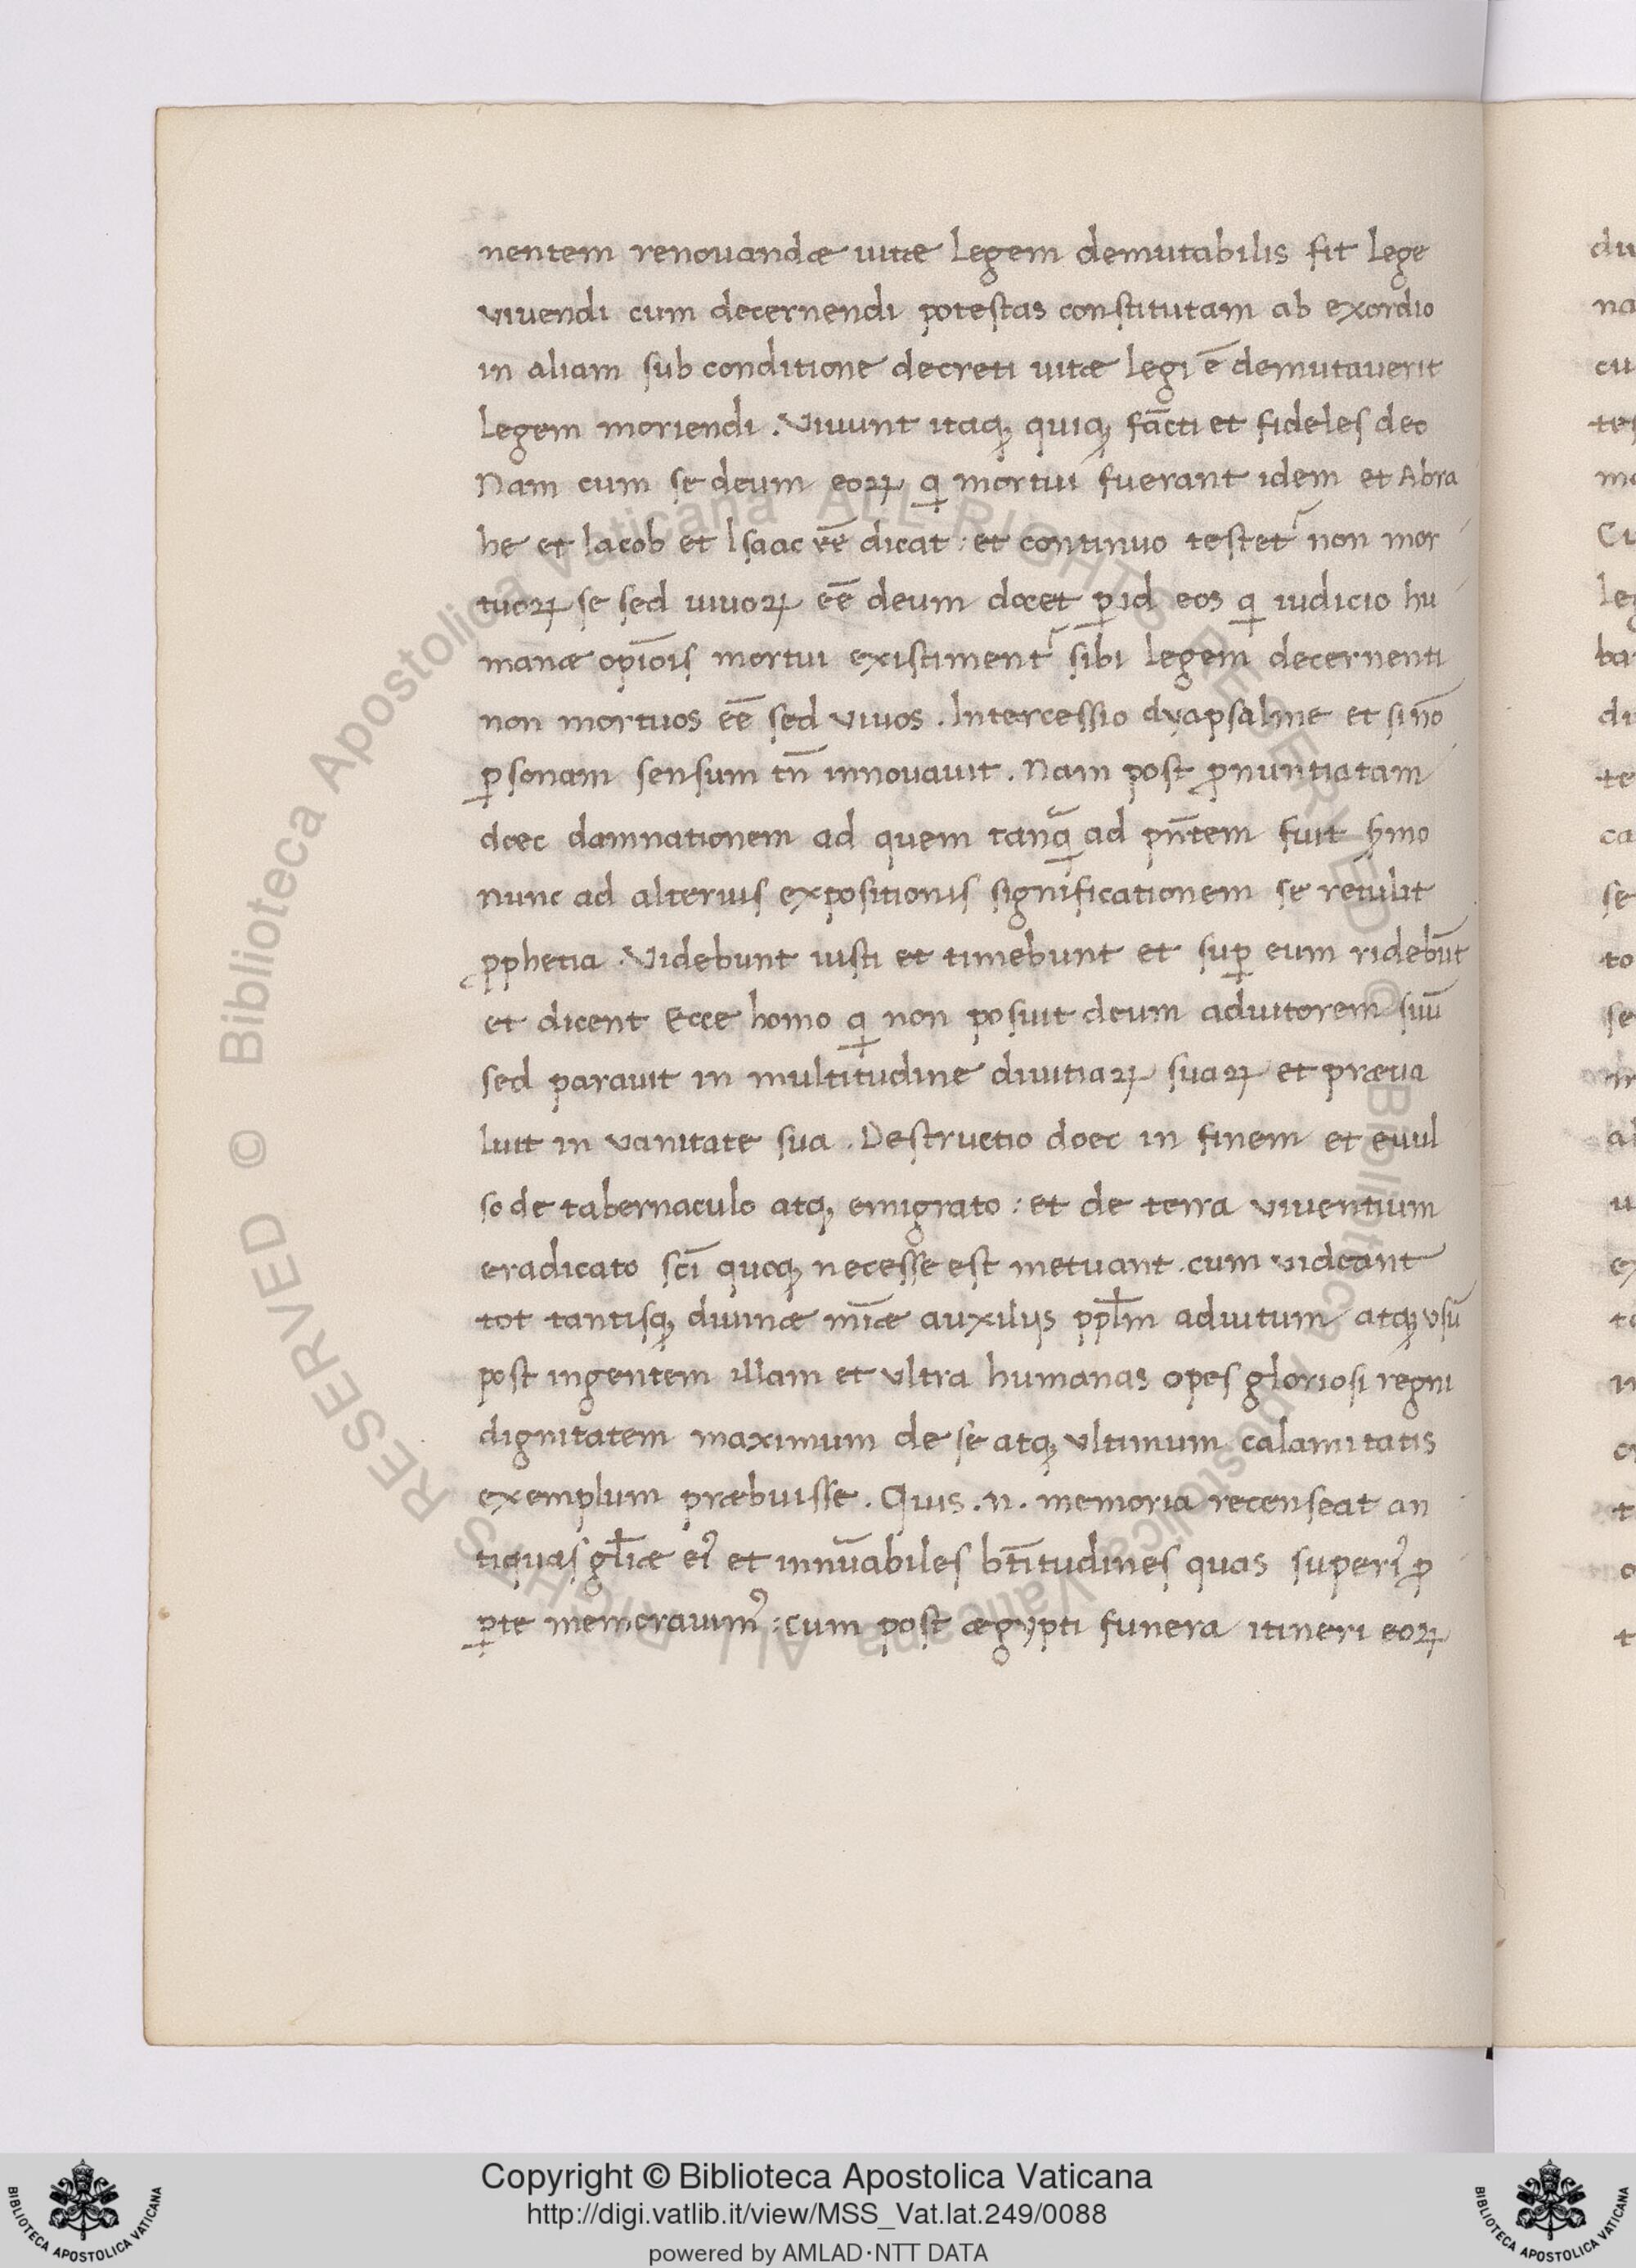 nentem renouandæ uitæ legem demutabilis fit lege
viuendi cum decernendi potestas constitutam ab exordio
in aliam sub conditione decreti uitæ legi ē demutauerit
legem moriendi. Viuunt itaqꝫ quiqꝫ sācti et fideles deo
Nam cum se deum eoꝝ q̇ mortui fuerant idem et Abra
he et Iacob et Isaac eē dicat: et continuo testet᷑ non mor
tuoꝝ se sed uiuoꝝ eē deum docet ꝑ id eos q̇ iudicio hu
manæ opīois mortui existiment᷑ sibi legem decernenti
non mortuos eē sed viuos. Intercessio dyapsalme et si nō
ꝑsonam sensum tn̄ innouauit. Nam post ꝓnuntiatam
doec damnationem ad quem tanq̄ ad pn̄tem fuit s̄mo
nunc ad alterius expositionis significationem se retulit
ꝓphetia. Videbunt iusti et timebunt et suꝑ eum ridebūt
et dicent Ecce homo q̇ non posuit deum adiutorem suū
sed parauit in multitudine diuitiaꝝ suaꝝ et præua
luit in vanitate sua. Destructio doec in finem et euul
so de tabernaculo atqꝫ emigrato: et de terra viuentium
eradicato sc̄i quoqꝫ necesse est metuant. cum uideant
tot tantisqꝫ diuinæ mīæ auxilijs ppl̄m adiutum atqꝫ vsū
post ingentem illam et vltra humanas opes gloriosi regni
dignitatem maximum de se atqꝫ vltimum calamitatis
exemplum præbuisse. Quis .n. memoria recenseat an
tiquas gl̄iæ eiꝰ et innūabiles bt̄itudines quas superiꝰ ꝓ
ꝑte memorauimꝰ: cum post ægypti funera itineri eoꝝ
Copyright © Biblioteca Apostolica Vaticana
http://digi.vatlib.it/view/MSS_Vat.lat.249/0088
powered by AMLAD·NTT DATA